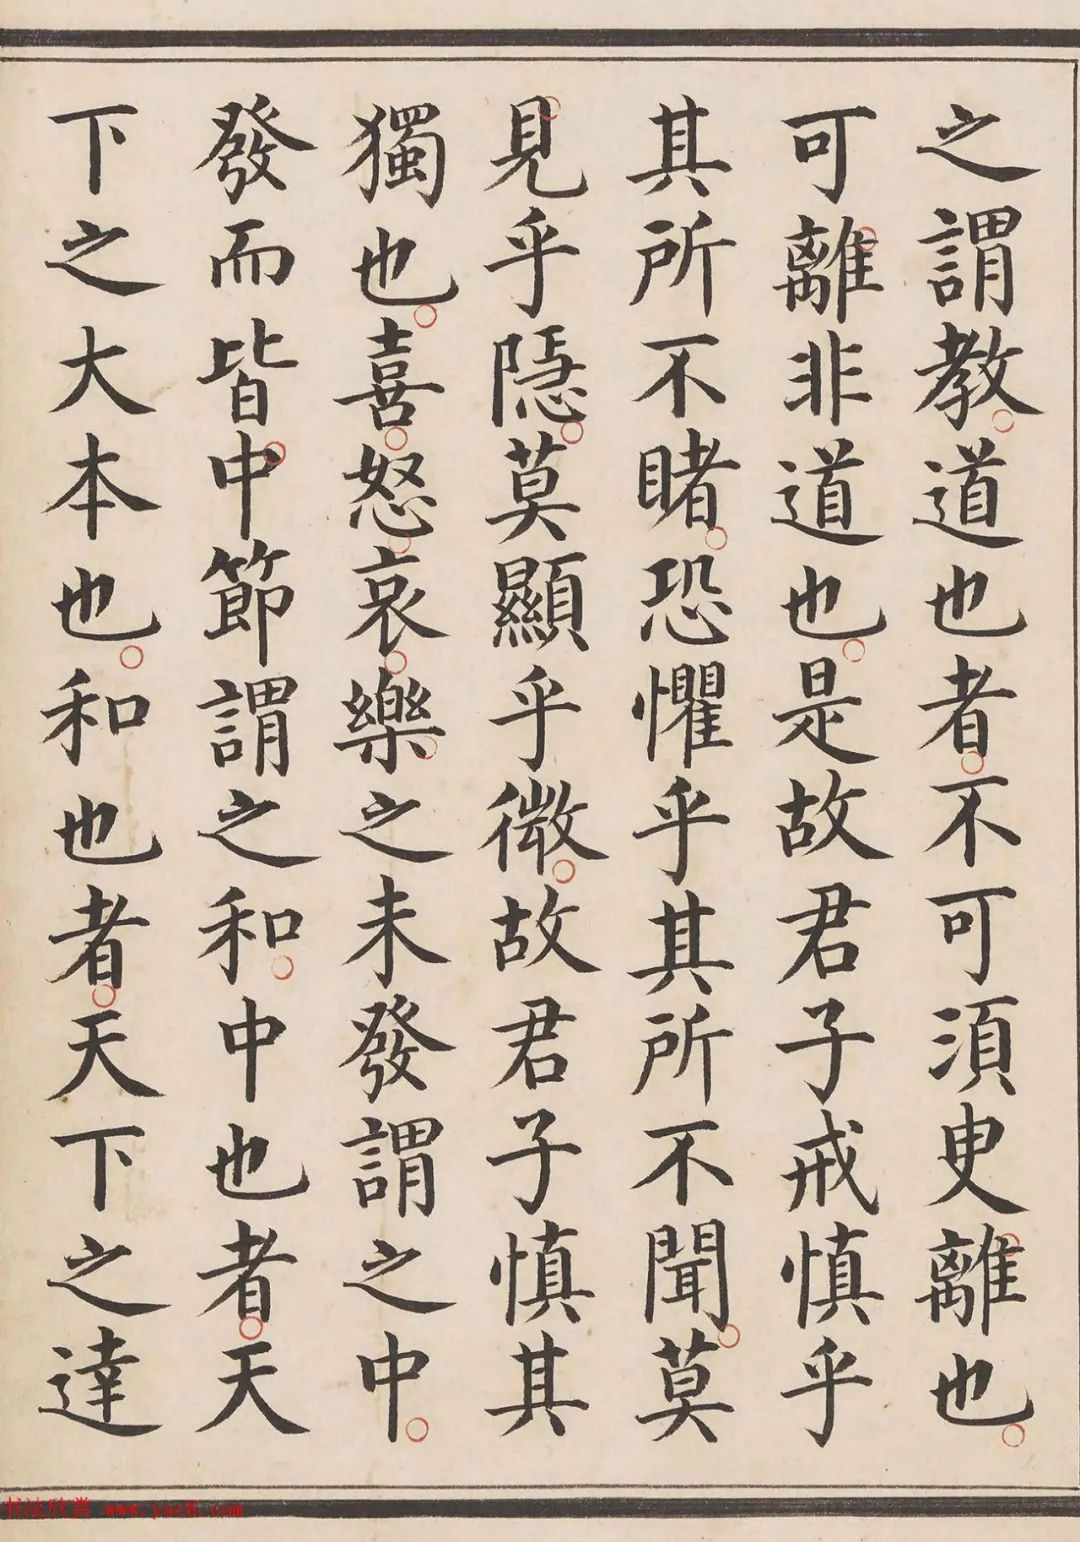 之謂教道也者不可須臾離也
可離非道也是故君子戒慎乎
其所不睹恐懼乎其所不聞莫
見乎隱莫顯乎微故君子慎其
獨也喜怒哀樂之未發謂之中
發而皆中節謂之和中也者天
下之大本也和也者天下之達
书法欣赏 www.yac8.com